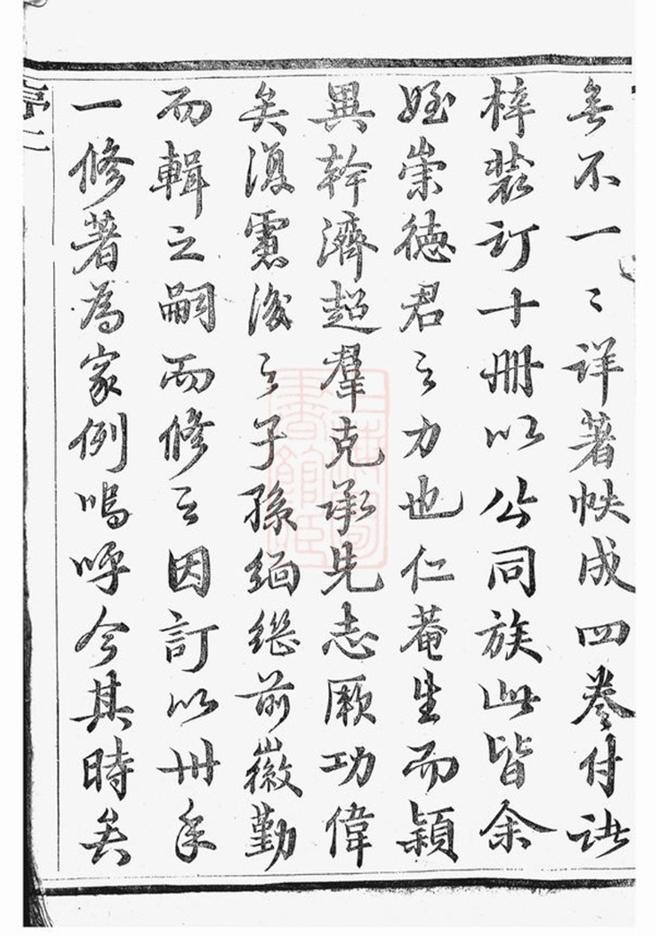 無不一〻詳著帙成四卷付諸
梓裝訂十册以公同族此皆余
姪崇德君之力也仁菴生而穎
異幹濟超羣克承先志厥功偉
矣復慮後之子孫緬繼前徽勤
而輯之嗣而修之因訂以卅年
一修著為家例嗚呼今其時矣
序二